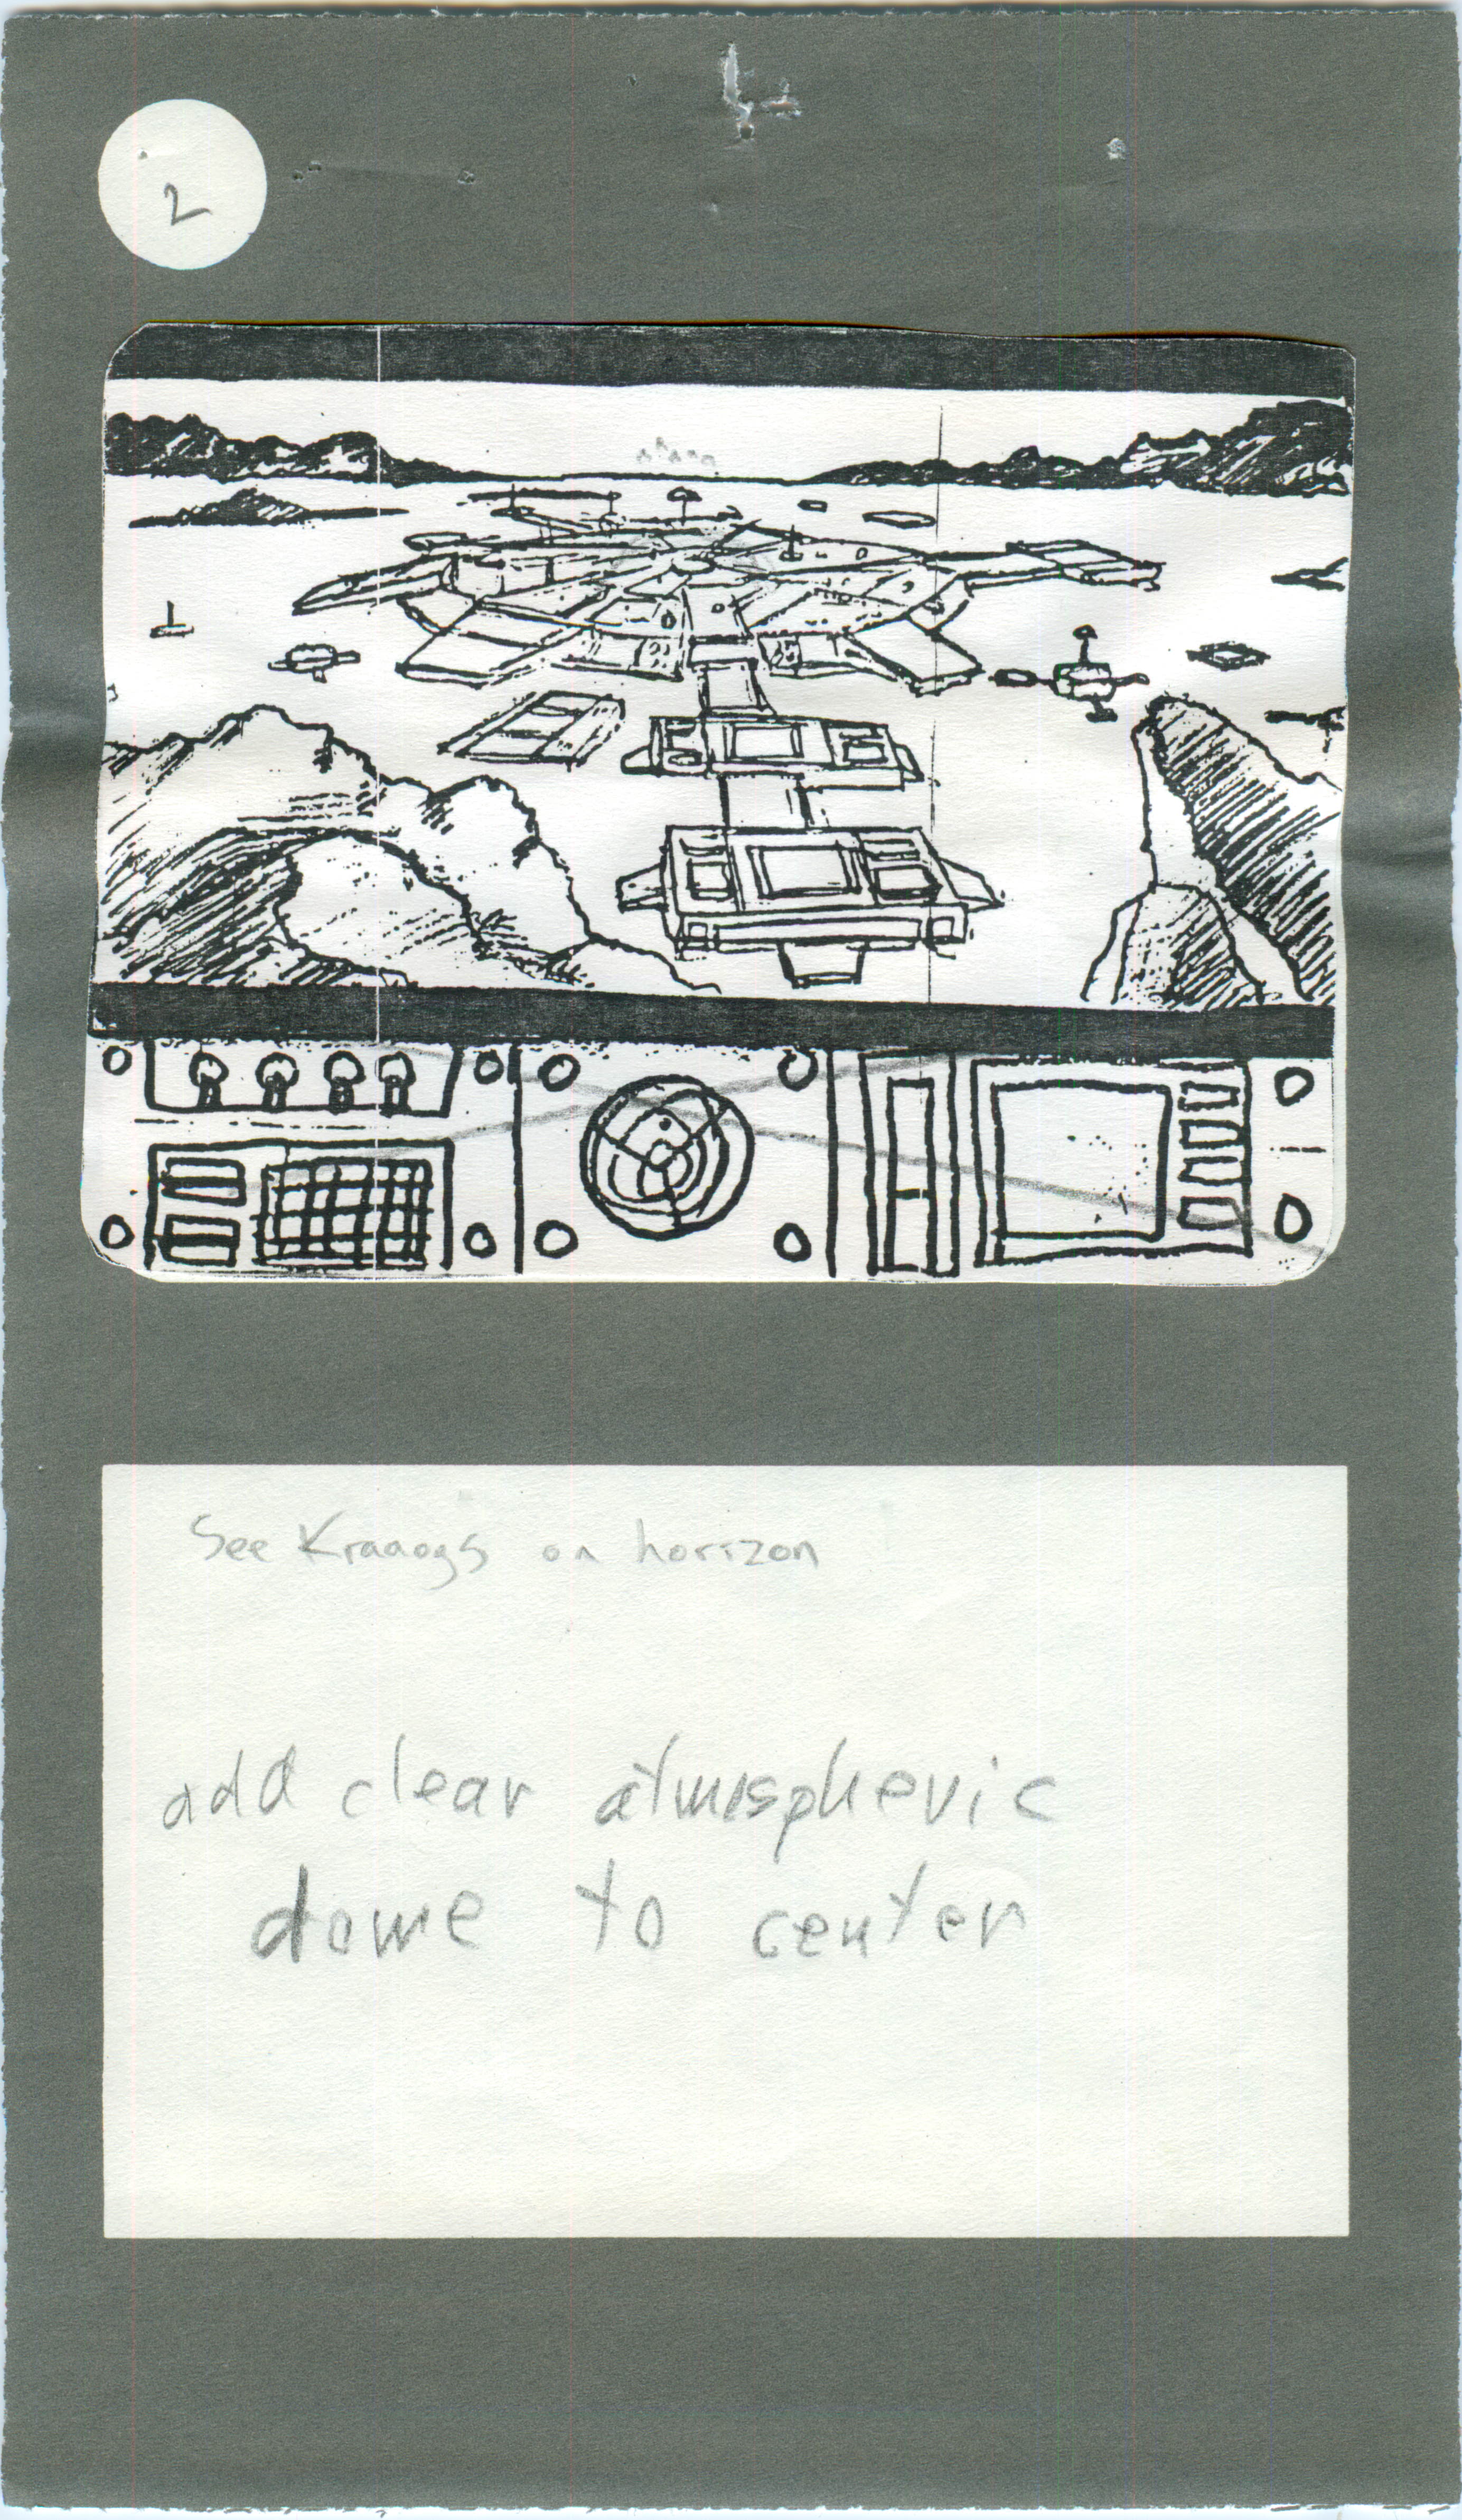 2
See Kraaogs on horizon
add clear atmospheric
dome to center